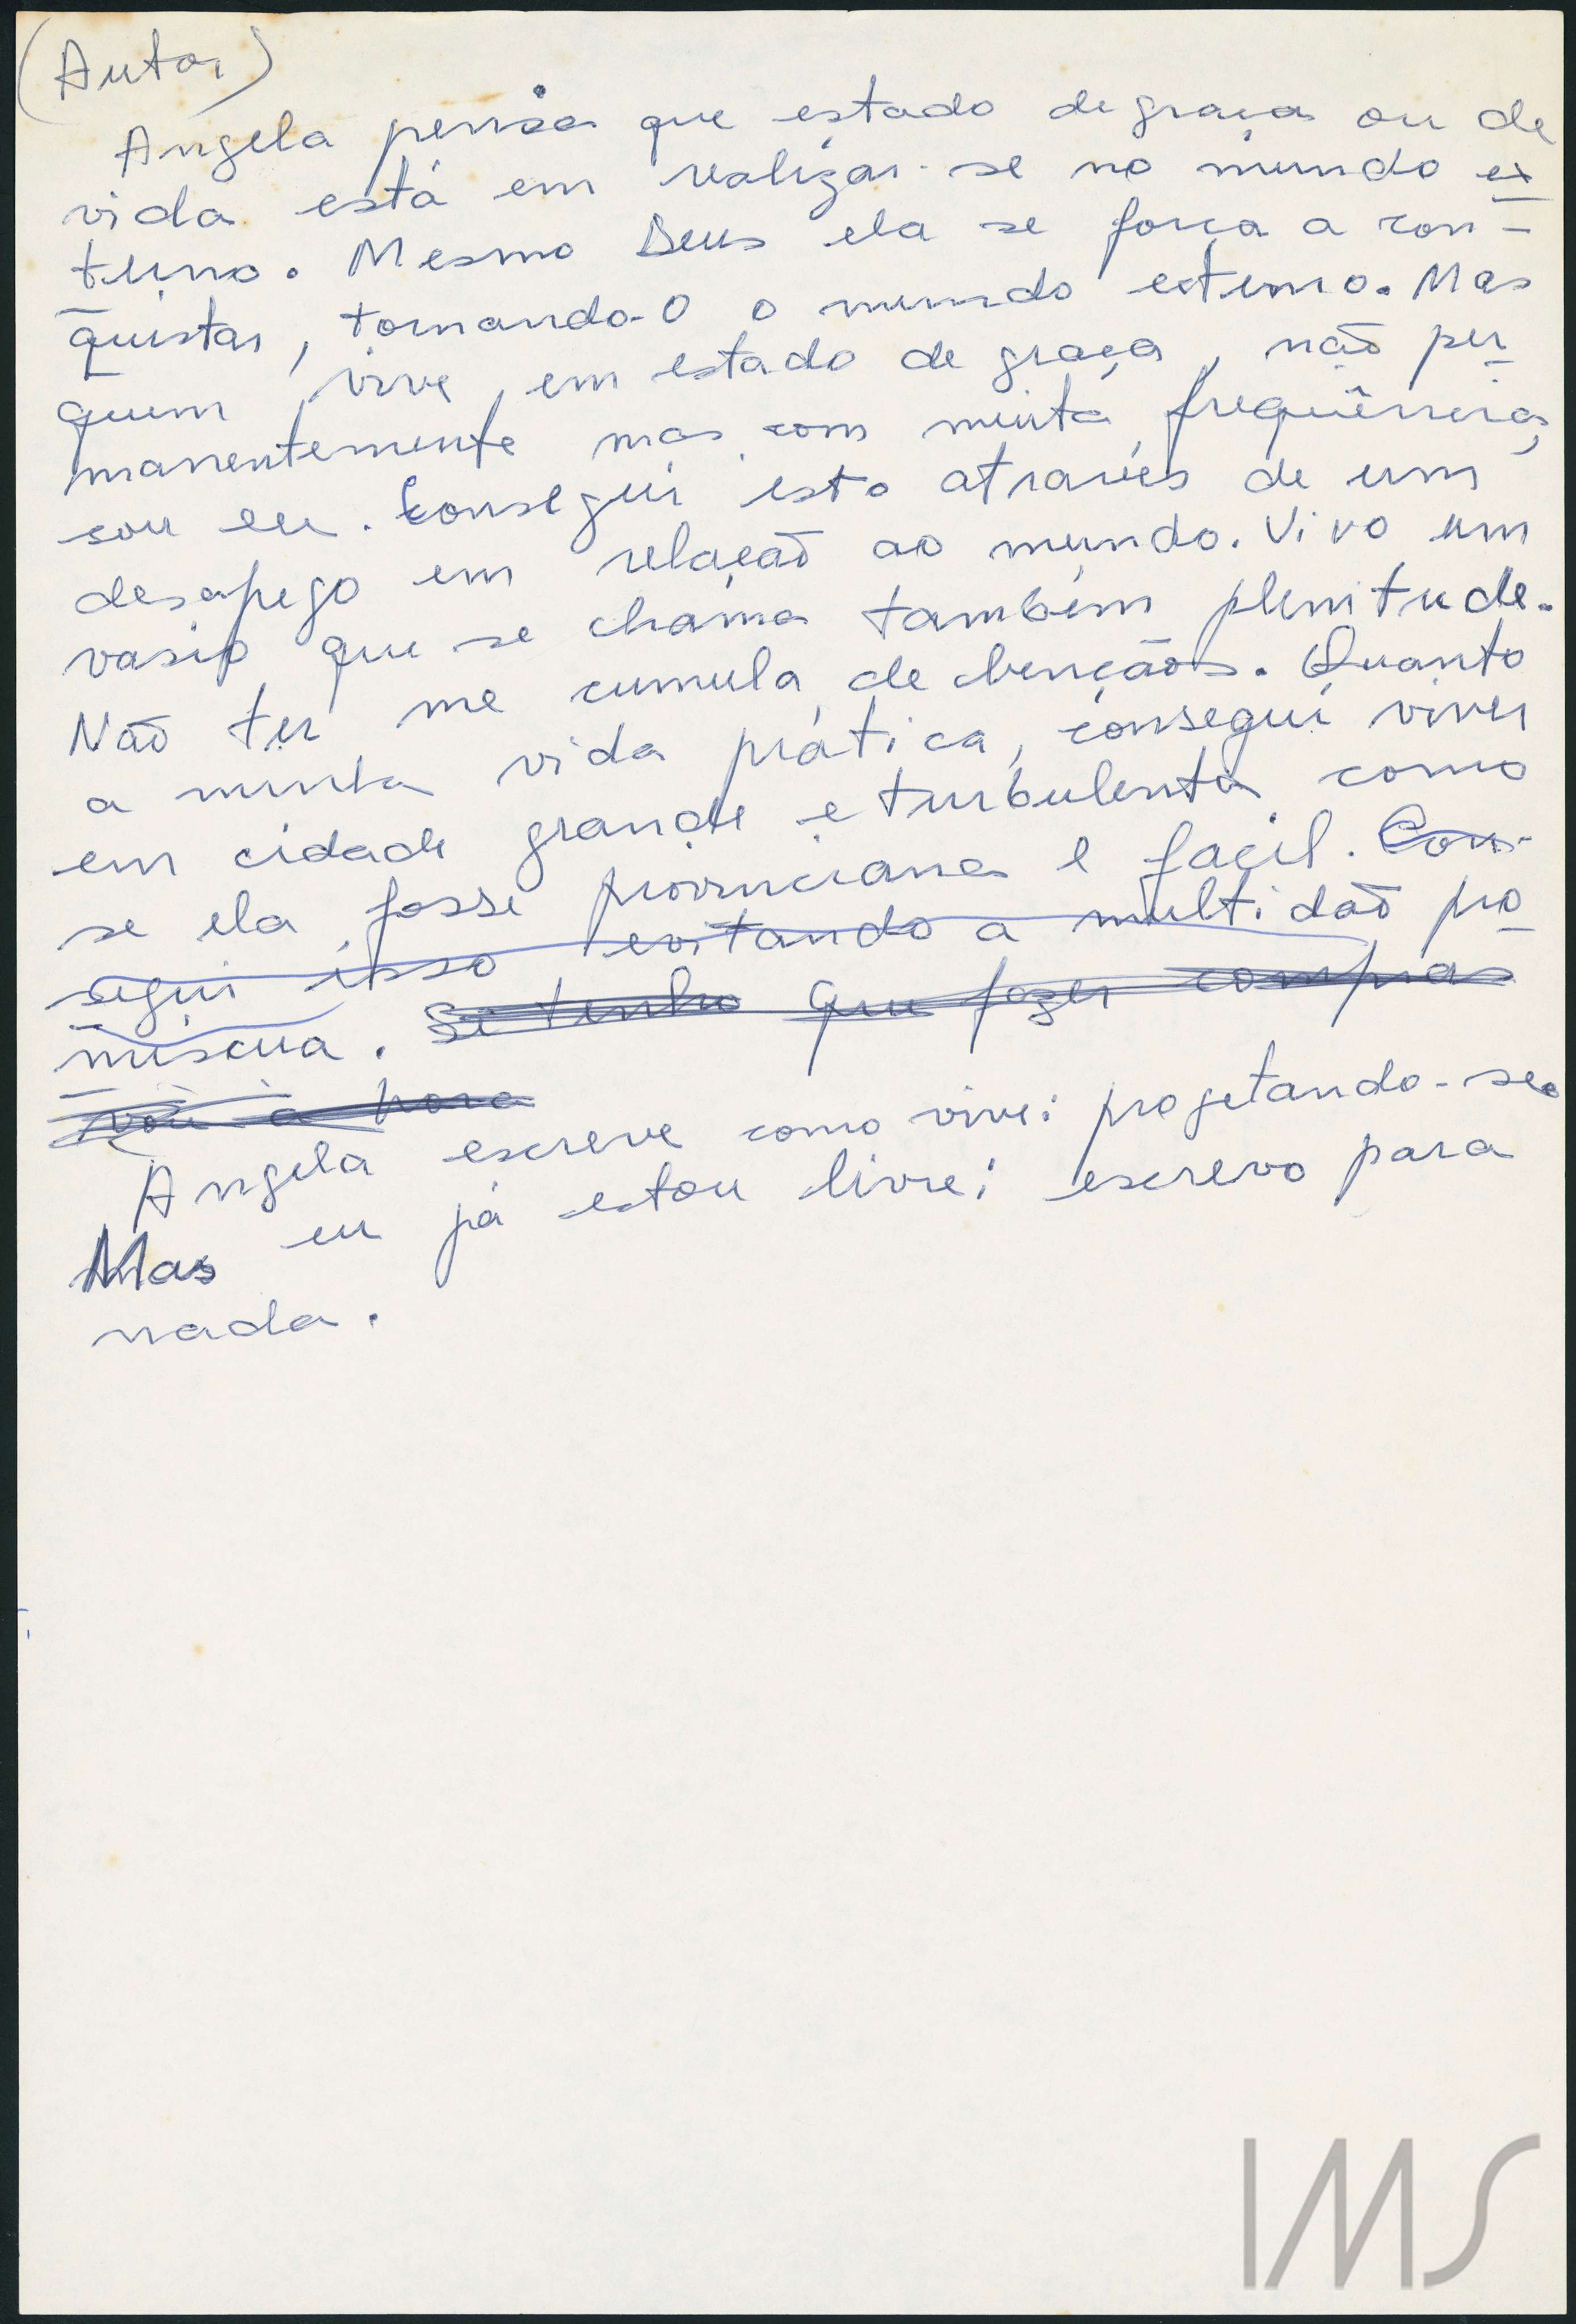 (Autor)
Angela pensa que estado de graça ou de
vida está em realizar-se no mundo ex
terno. Mesmo Deus ela se força a con-
quistar, tornando-O o mundo externo. Mas
quem vive em estado de graça, não per
manentemente mas com muita freqüência,
sou eu. Consegui isto através de um
desapego em relação ao mundo. Vivo um
vasio que se chama também plenitude.
Não ter me cumula de bençãos. Quanto
a minha vida prática, consegui viver
em cidade grande e turbulenta como
se ela fosse provinciana e facil. Con-
segui isso evitando a multidão pro
miscua. Se tenho que fazer compras
vou a hora
Angela escreve como vive: projetando-se.
Mas eu já estou livre: escrevo para
nada.
IMS